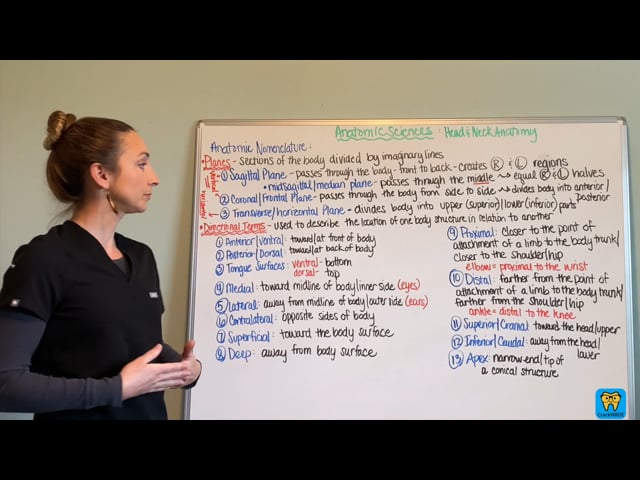 Anatomic Sciences : Head & Neck Anatomy
Anatomic Nomenclature:
• Planes - sections of the body divided by imaginary lines
① Sagittal Plane - passes through the body - front to back - creates Ⓡ & Ⓛ regions
• midsagittal/median plane - passes through the middle → equal Ⓡ & Ⓛ halves
② Coronal/Frontal Plane - passes through the body from side to side → divides body into anterior/
posterior
③ Transverse/horizontal Plane - divides body into upper (superior)/lower (inferior) parts
• Directional Terms - used to describe the location of one body structure in relation to another
① Anterior/Ventral: toward/at front of body
② Posterior/Dorsal: toward/at back of body
③ Tongue Surfaces: ventral - bottom
dorsal - top
④ Medial: toward midline of body/inner side (eyes)
⑤ Lateral: away from midline of body/outer side (ears)
⑥ Contralateral: opposite sides of body
⑦ Superficial: toward the body surface
⑧ Deep: away from body surface
⑨ Proximal: closer to the point of
attachment of a limb to the body trunk/
closer to the shoulder/hip
elbow = proximal to the wrist
⑩ Distal: farther from the point of
attachment of a limb to the body trunk/
farther from the shoulder/hip
ankle = distal to the knee
⑪ Superior/Cranial: toward the head/upper
⑫ Inferior/Caudal: away from the head/
lower
⑬ Apex: narrow end/tip of
a conical structure